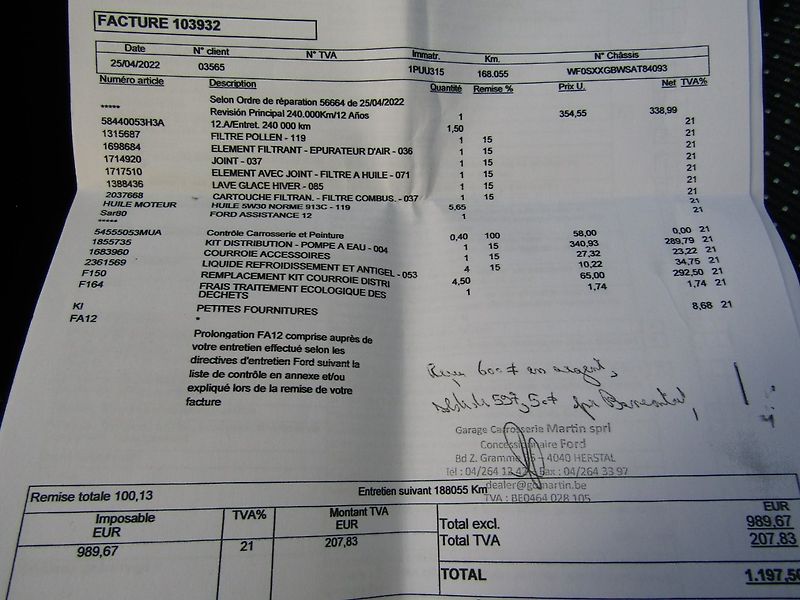 FACTURE 103932
Date N° client N° TVA Immatr. Km. N° Châssis
25/04/2022 03565 1PUU315 168.055 WF0SXXGBWSAT84093
Numéro article Description Quantité Remise % Prix U. Net TVA%
Selon Ordre de réparation 56664 de 25/04/2022
***** Revision Principal 240.000Km/12 Años 1 354,55 338,99
58440053H3A 12.A/Entret. 240 000 km 1,50 21
1315687 FILTRE POLLEN - 119 1 15 21
1698684 ELEMENT FILTRANT - EPURATEUR D'AIR - 036 1 15 21
1714920 JOINT - 037 1 15 21
1717510 ELEMENT AVEC JOINT - FILTRE A HUILE - 071 1 15 21
1388436 LAVE GLACE HIVER - 085 1 15 21
2037668 CARTOUCHE FILTRAN. - FILTRE COMBUS. - 037 1 15 21
HUILE MOTEUR HUILE 5W30 NORME 913C - 119 5,65 21
Sar80 FORD ASSISTANCE 12 1 21
*****
54555053MUA Contrôle Carrosserie et Peinture 0,40 100 58,00 0,00 21
1855735 KIT DISTRIBUTION - POMPE A EAU - 004 1 15 340,93 289,79 21
1683960 COURROIE ACCESSOIRES 1 15 27,32 23,22 21
2361569 LIQUIDE REFROIDISSEMENT ET ANTIGEL - 053 4 15 10,22 34,75 21
F150 REMPLACEMENT KIT COURROIE DISTRI 4,50 65,00 292,50 21
F164 FRAIS TRAITEMENT ECOLOGIQUE DES 1 1,74 1,74 21
DECHETS
KI PETITES FOURNITURES 8,68 21
FA12 *
Prolongation FA12 comprise auprès de
votre entretien effectué selon les
directives d'entretien Ford suivant la
liste de contrôle en annexe et/ou
expliqué lors de la remise de votre
facture
Reçu 600€ en argent,
solde de 597,50€ par Bancontact,
Garage Carrosserie Martin sprl
Concessionnaire Ford
Bd Z. Gramme - 4040 HERSTAL
Tél : 04/264 Fax : 04/264 33 97
dealer@gcmartin.be
TVA : BE0464 028 105
Remise totale 100,13 Entretien suivant 188055 Km
Imposable TVA% Montant TVA EUR
EUR EUR Total excl. 989,67
989,67 21 207,83 Total TVA 207,83
TOTAL 1.197,50